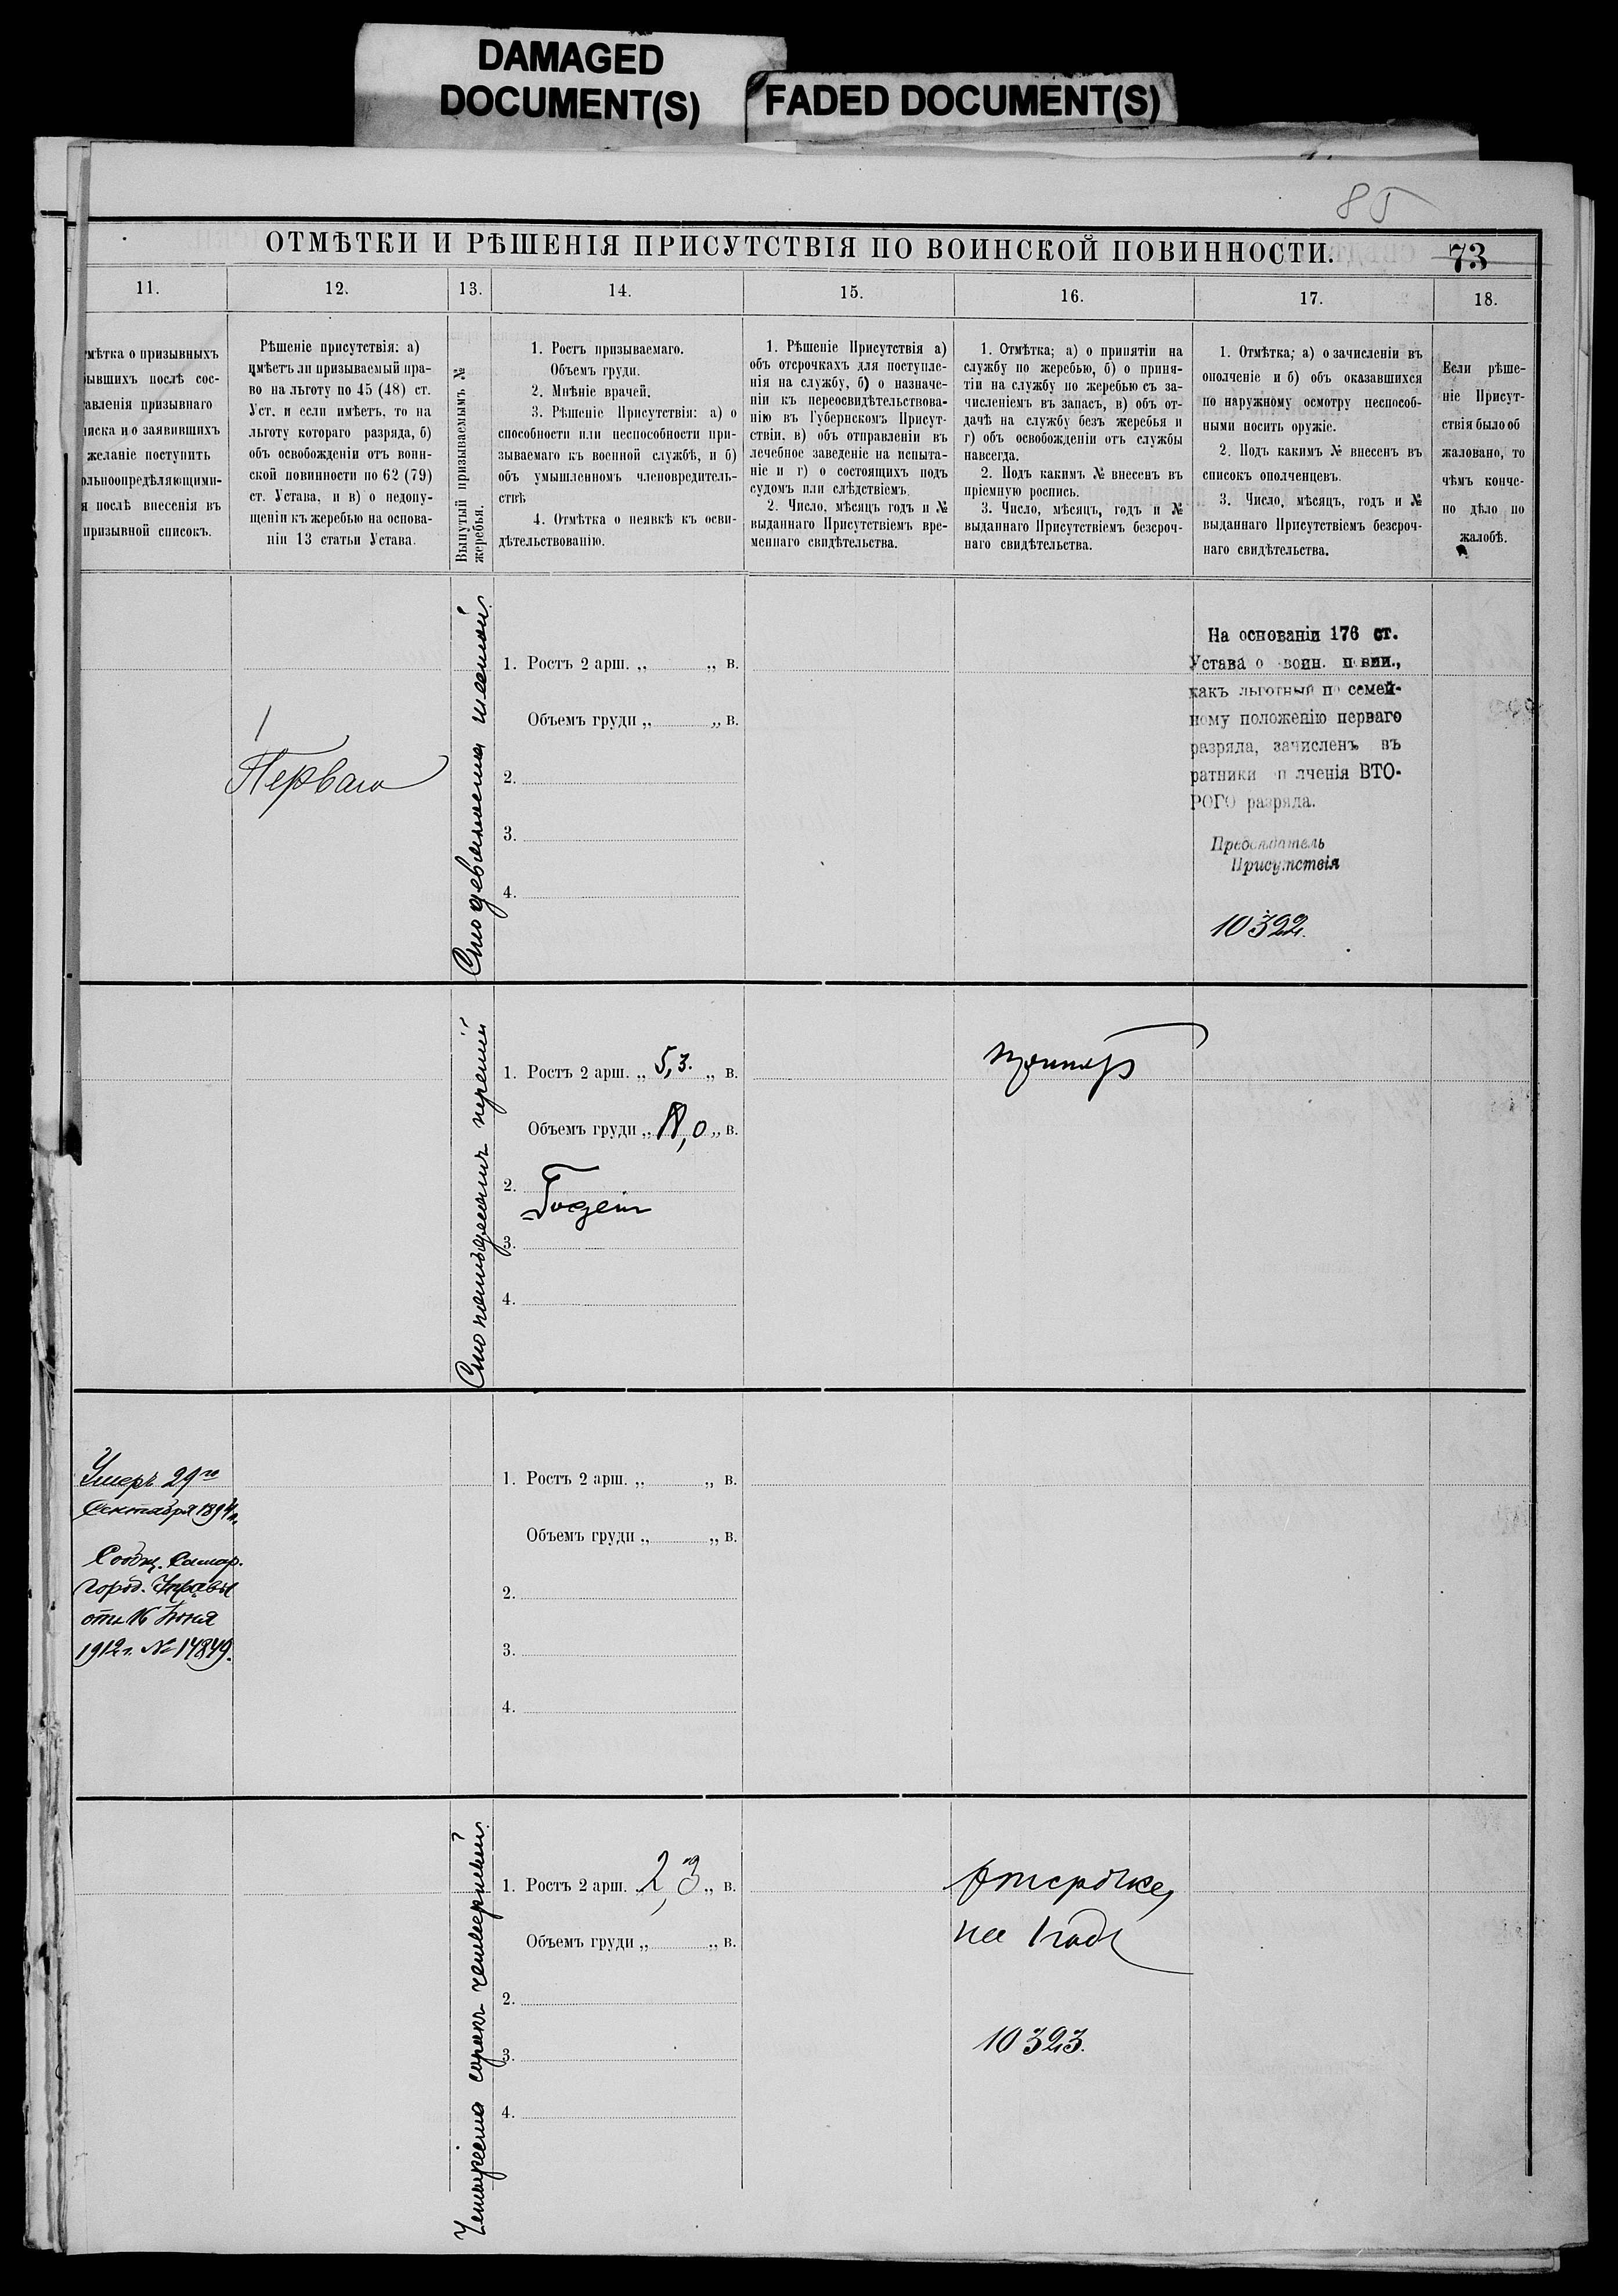 DAMAGED
DOCUMENT(S)
FADED DOCUMENT(S)
85
ОТМѢТКИ И РѢШЕНІЯ ПРИСУТСТВІЯ ПО ВОИНСКОЙ ПОВИННОСТИ.
73
11.
12.
13.
14.
15.
16.
17.
18.
мѣтка о призывныхъ
ывшихъ послѣ сос-
авленія призывнаго
иска и о заявившихъ
желаніе поступить
ольноопредѣляющими-
я послѣ внесенія въ
призывной списокъ.
Рѣшеніе присутствія: а)
имѣетъ ли призываемый пра-
во на льготу по 45 (48) ст.
Уст. и если имѣетъ, то на
льготу котораго разряда, б)
объ освобожденіи отъ воин-
ской повинности по 62 (79)
ст. Устава, и в) о недопу-
щеніи къ жеребью на основа-
ніи 13 статьи Устава.
Вынутый призываемымъ №
жеребья.
1. Ростъ призываемаго.
Объемъ груди.
2. Мнѣніе врачей.
3. Рѣшеніе Присутствія: а) о
способности или неспособности при-
зываемаго къ военной службѣ, и б)
объ умышленномъ членовредитель-
ствѣ
4. Отмѣтка о неявкѣ къ осви-
дѣтельствованію.
1. Рѣшеніе Присутствія а)
объ отсрочкахъ для поступле-
нія на службу, б) о назначе-
ніи къ переосвидѣтельствова-
нію въ Губернскомъ Присут-
ствіи. в) объ отправленіи въ
лечебное заведеніе на испыта-
ніе и г) о состоящихъ подъ
судомъ или слѣдствіемъ
2. Число, мѣсяцъ годъ и №
выданнаго Присутствіемъ вре-
меннаго свидѣтельства.
1. Отмѣтка; а) о принятіи на
службу по жеребью, б) о приня-
тіи на службу по жеребью съ за-
численіемъ въ запасъ, в) объ от-
дачѣ на службу безъ жеребья и
г) объ освобожденіи отъ службы
навсегда.
2. Подъ какимъ № внесенъ въ
пріемную роспись.
3. Число, мѣсяцъ, годъ и №
выданнаго Присутствіемъ безсроч-
наго свидѣтельства.
1. Отмѣтка; а) о зачисленіи въ
ополченіе и б) объ оказавшихся
по наружному осмотру неспособ-
ными носить оружіе.
2. Подъ какимъ № внесенъ въ
списокъ ополченцевъ.
3. Число, мѣсяцъ, годъ и №
выданнаго Присутствіемъ безсроч-
наго свидѣтельства.
Если рѣше-
ніе Присут-
ствія было об
жаловано, то
чѣмъ конче-
но дѣло по
жалобѣ.
1
Перваго
Сто девяносто шестой.
1. Ростъ 2 арш. „ „ в.
Объемъ груди „ „ в.
2.
3.
4.
На основаніи 176 ст.
Устава о воин. повин.,
какъ льготный по семей-
ному положенію перваго
разряда, зачисленъ въ
ратники оп лченія ВТО-
РОГО разряда.
Предсѣдатель
Присутствія
10322.
Сто пятьдесятъ первый
1. Ростъ 2 арш. „ 5,3. „ в.
Объемъ груди „ ,0 „ в.
2.
Годенъ
3.
4.
принятъ
Умеръ 29го
1894 г.
Сообщ. Самар.
город. Управы
отъ 16 Іюня
1912 г. № 14849.
1. Ростъ 2 арш. „ „ в.
Объемъ груди „ „ в.
2.
3.
4.
Четыреста сорокъ четвертый.
1. Ростъ 2 арш. 2,3 „ в.
Объемъ груди „ „ в.
2.
3.
4.
отсрочка
на 1 годъ
10323.